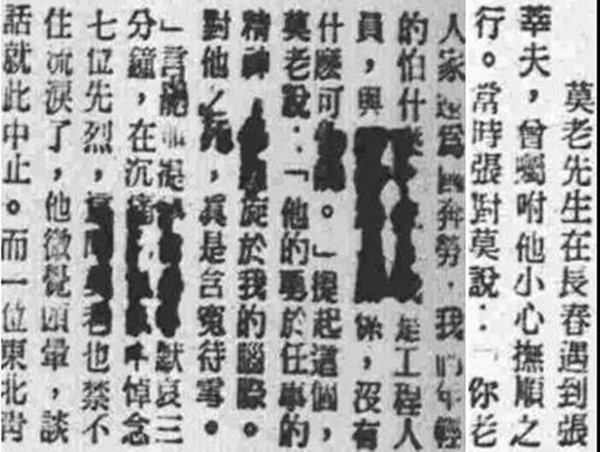 莫老先生在長春遇到張
莘夫，曾囑咐他小心撫順之
行。當時張對莫說：「你老
人家還爲國奔勞，我們年輕
的怕什麽是工程人
員，與係，沒有
什麽可。」提起這個，
莫老說：「他的勇於任事的
精神旋於我的腦際。
對他之死，眞是含寃待雪。
」言罷提默哀三
分鐘，在沉痛中悼念
七位先烈，這也禁不
住流淚了，他微覺頭暈，談
話就此中止。而一位東北靑